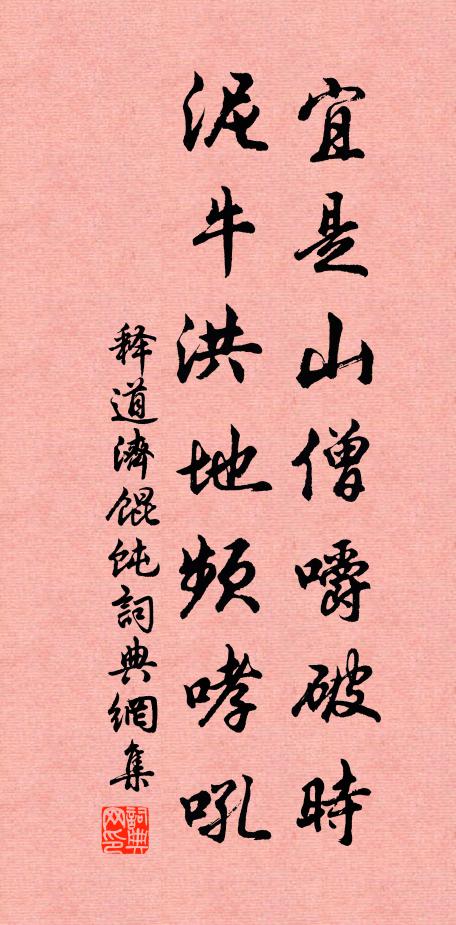 宜是山僧嚼破時
泥牛洪地頻哮吼
释道濟餛飩詞典網集
詞典网印